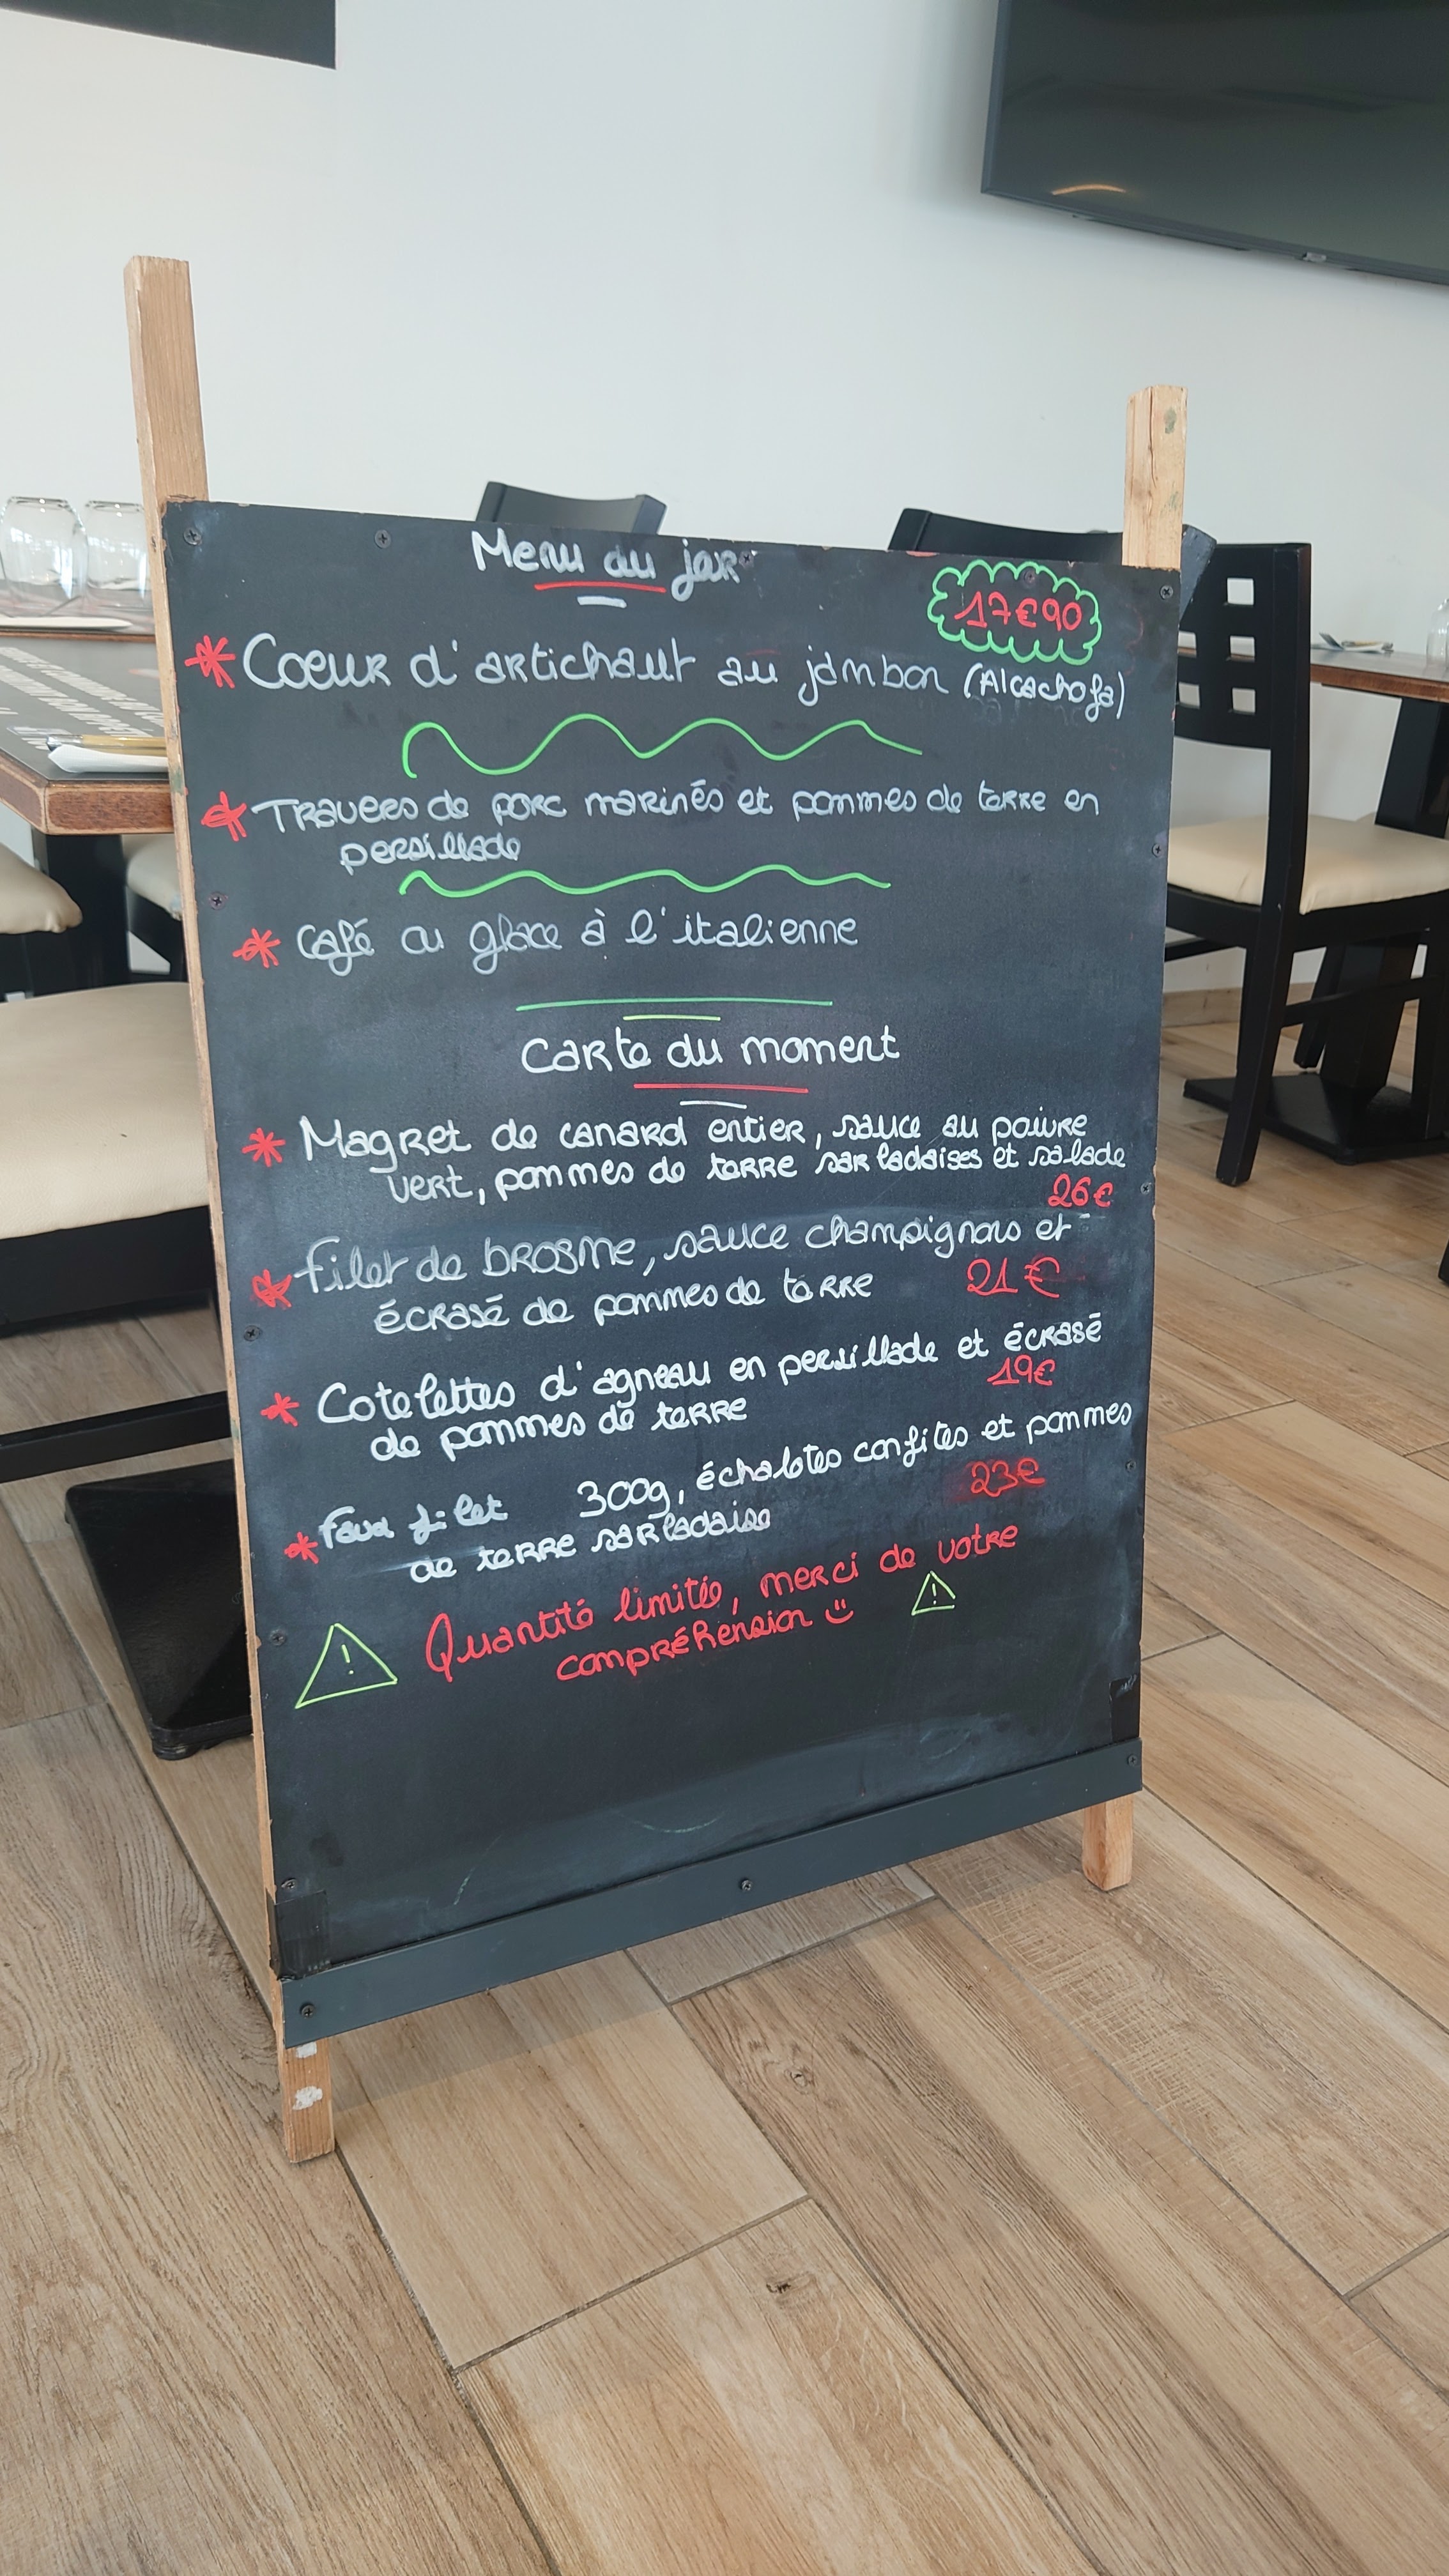 Menu du jour
17€90
* Coeur d'artichaut au jambon (Alcachofa)
* Travers de porc marinés et pommes de terre en
persillade
* Café ou glace à l'italienne
Carte du moment
* Magret de canard entier, sauce au poivre
vert, pommes de terre sarladaises et salade
26€
* Filet de brosme, sauce champignons et
écrasé de pommes de terre 21€
* Cotelettes d'agneau en persillade et écrasé
de pommes de terre 19€
* Faux filet 300g, échalotes confites et pommes
de terre sarladaise 23€
⚠ Quantité limitée, merci de votre
compréhension ☺ ⚠